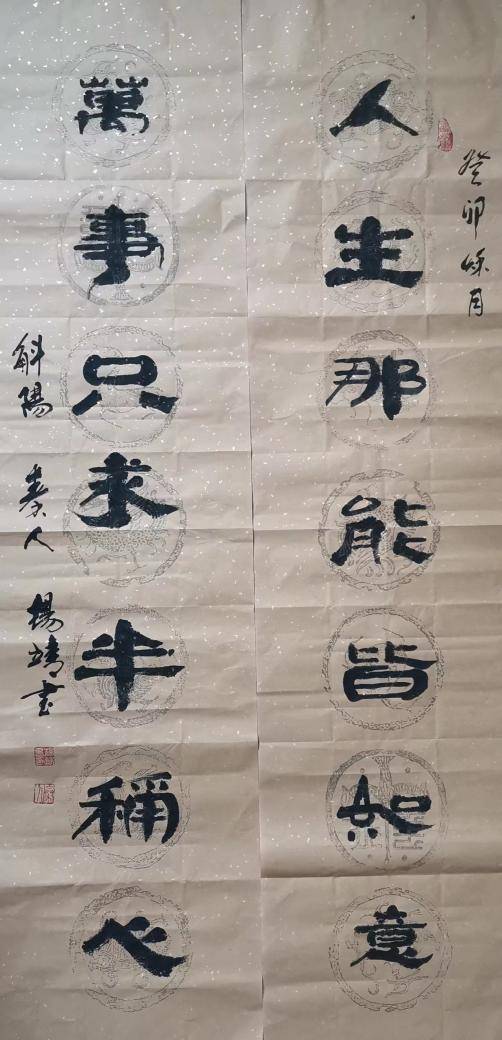 癸卯秋月
人生那能皆如意
萬事只求半稱心
斛陽 秦人 楊靖書